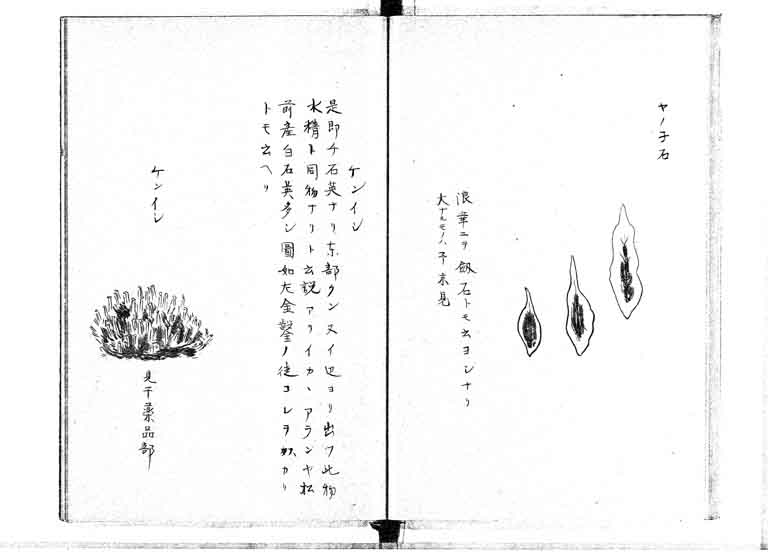 ヤノ子石
浪華ニテ劔石トモ云ヨシナリ
大ナルモノハ予未見
ケンイシ
是即チ石英ナリ東部クンヌイ辺ヨリ出ツ此物
水精ト同物ナリト云説アリイカヽアランヤ松
前産白石英多シ圖如左金鑿ノ徒コレヲ カリ
トモ云ヘリ
ケンイシ
見于薬品部